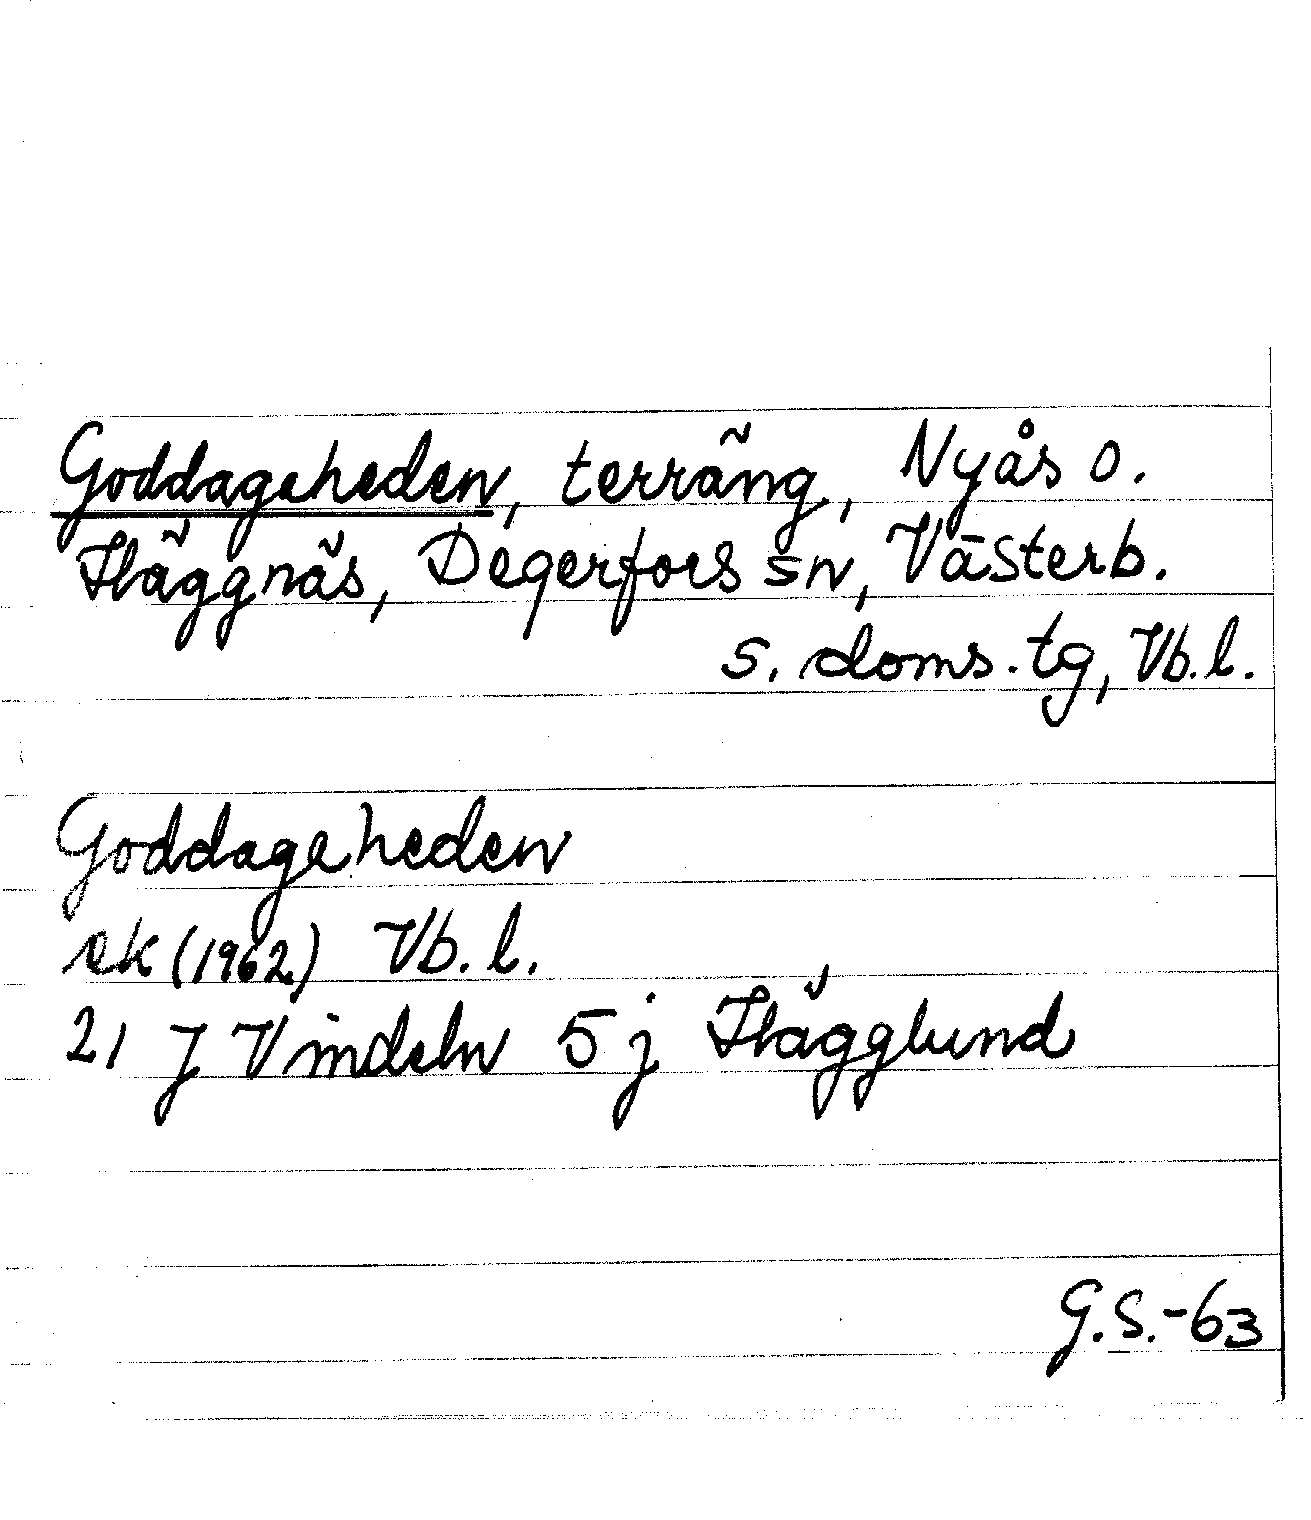 Goddagsheden, terräng, Nyås o.
Häggnäs, Degerfors sn, Västerb.
s. doms. tg, Vb. l.
Goddagsheden
ek (1962) Vb. l.
21 J Vindeln 5 j Hägglund
G.S.-63